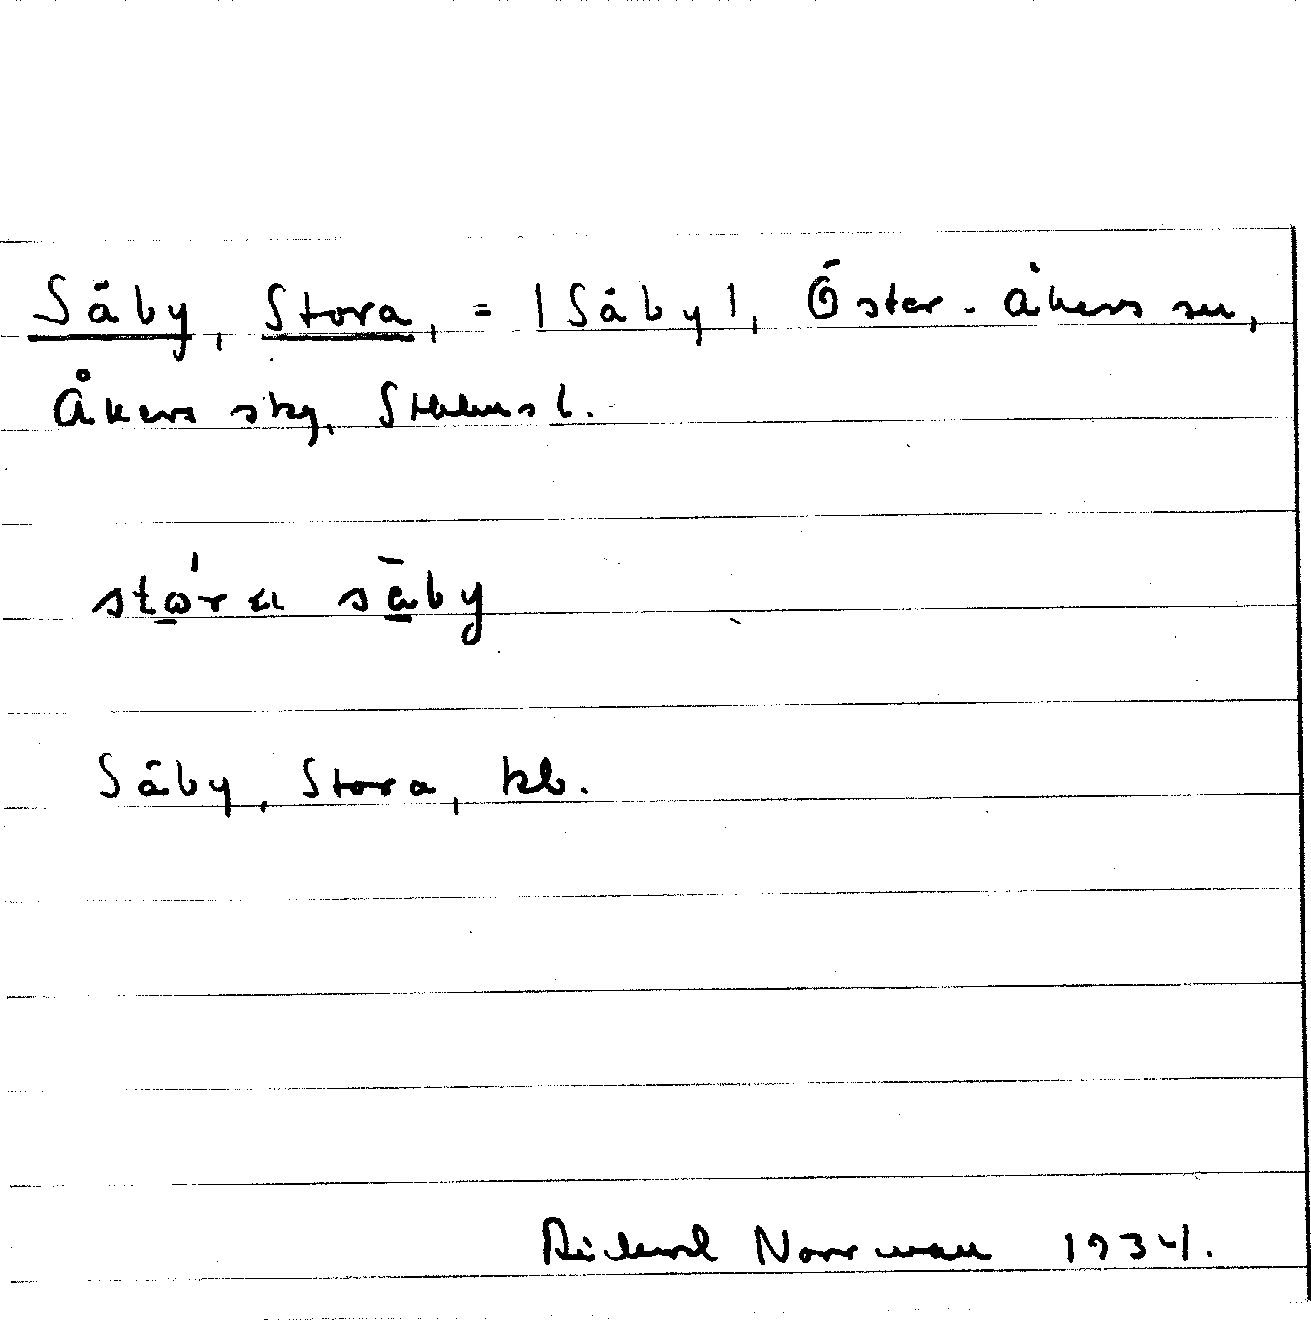 Säby, Stora, = |Säby|, Öster-Åkers sn,
Åkers skg, Sthlms l.
stọ́ra sä̱by
Säby, Stora, kb.
Rickard Norrman 1934.